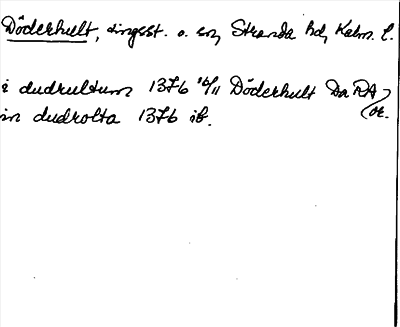 Döderhult, tingsst. o. sn, Stranda hd, Kalm. l.
i dudrultum 1376 16/11 Döderhult Da RA
or.
in dudrolta 1376 ib.